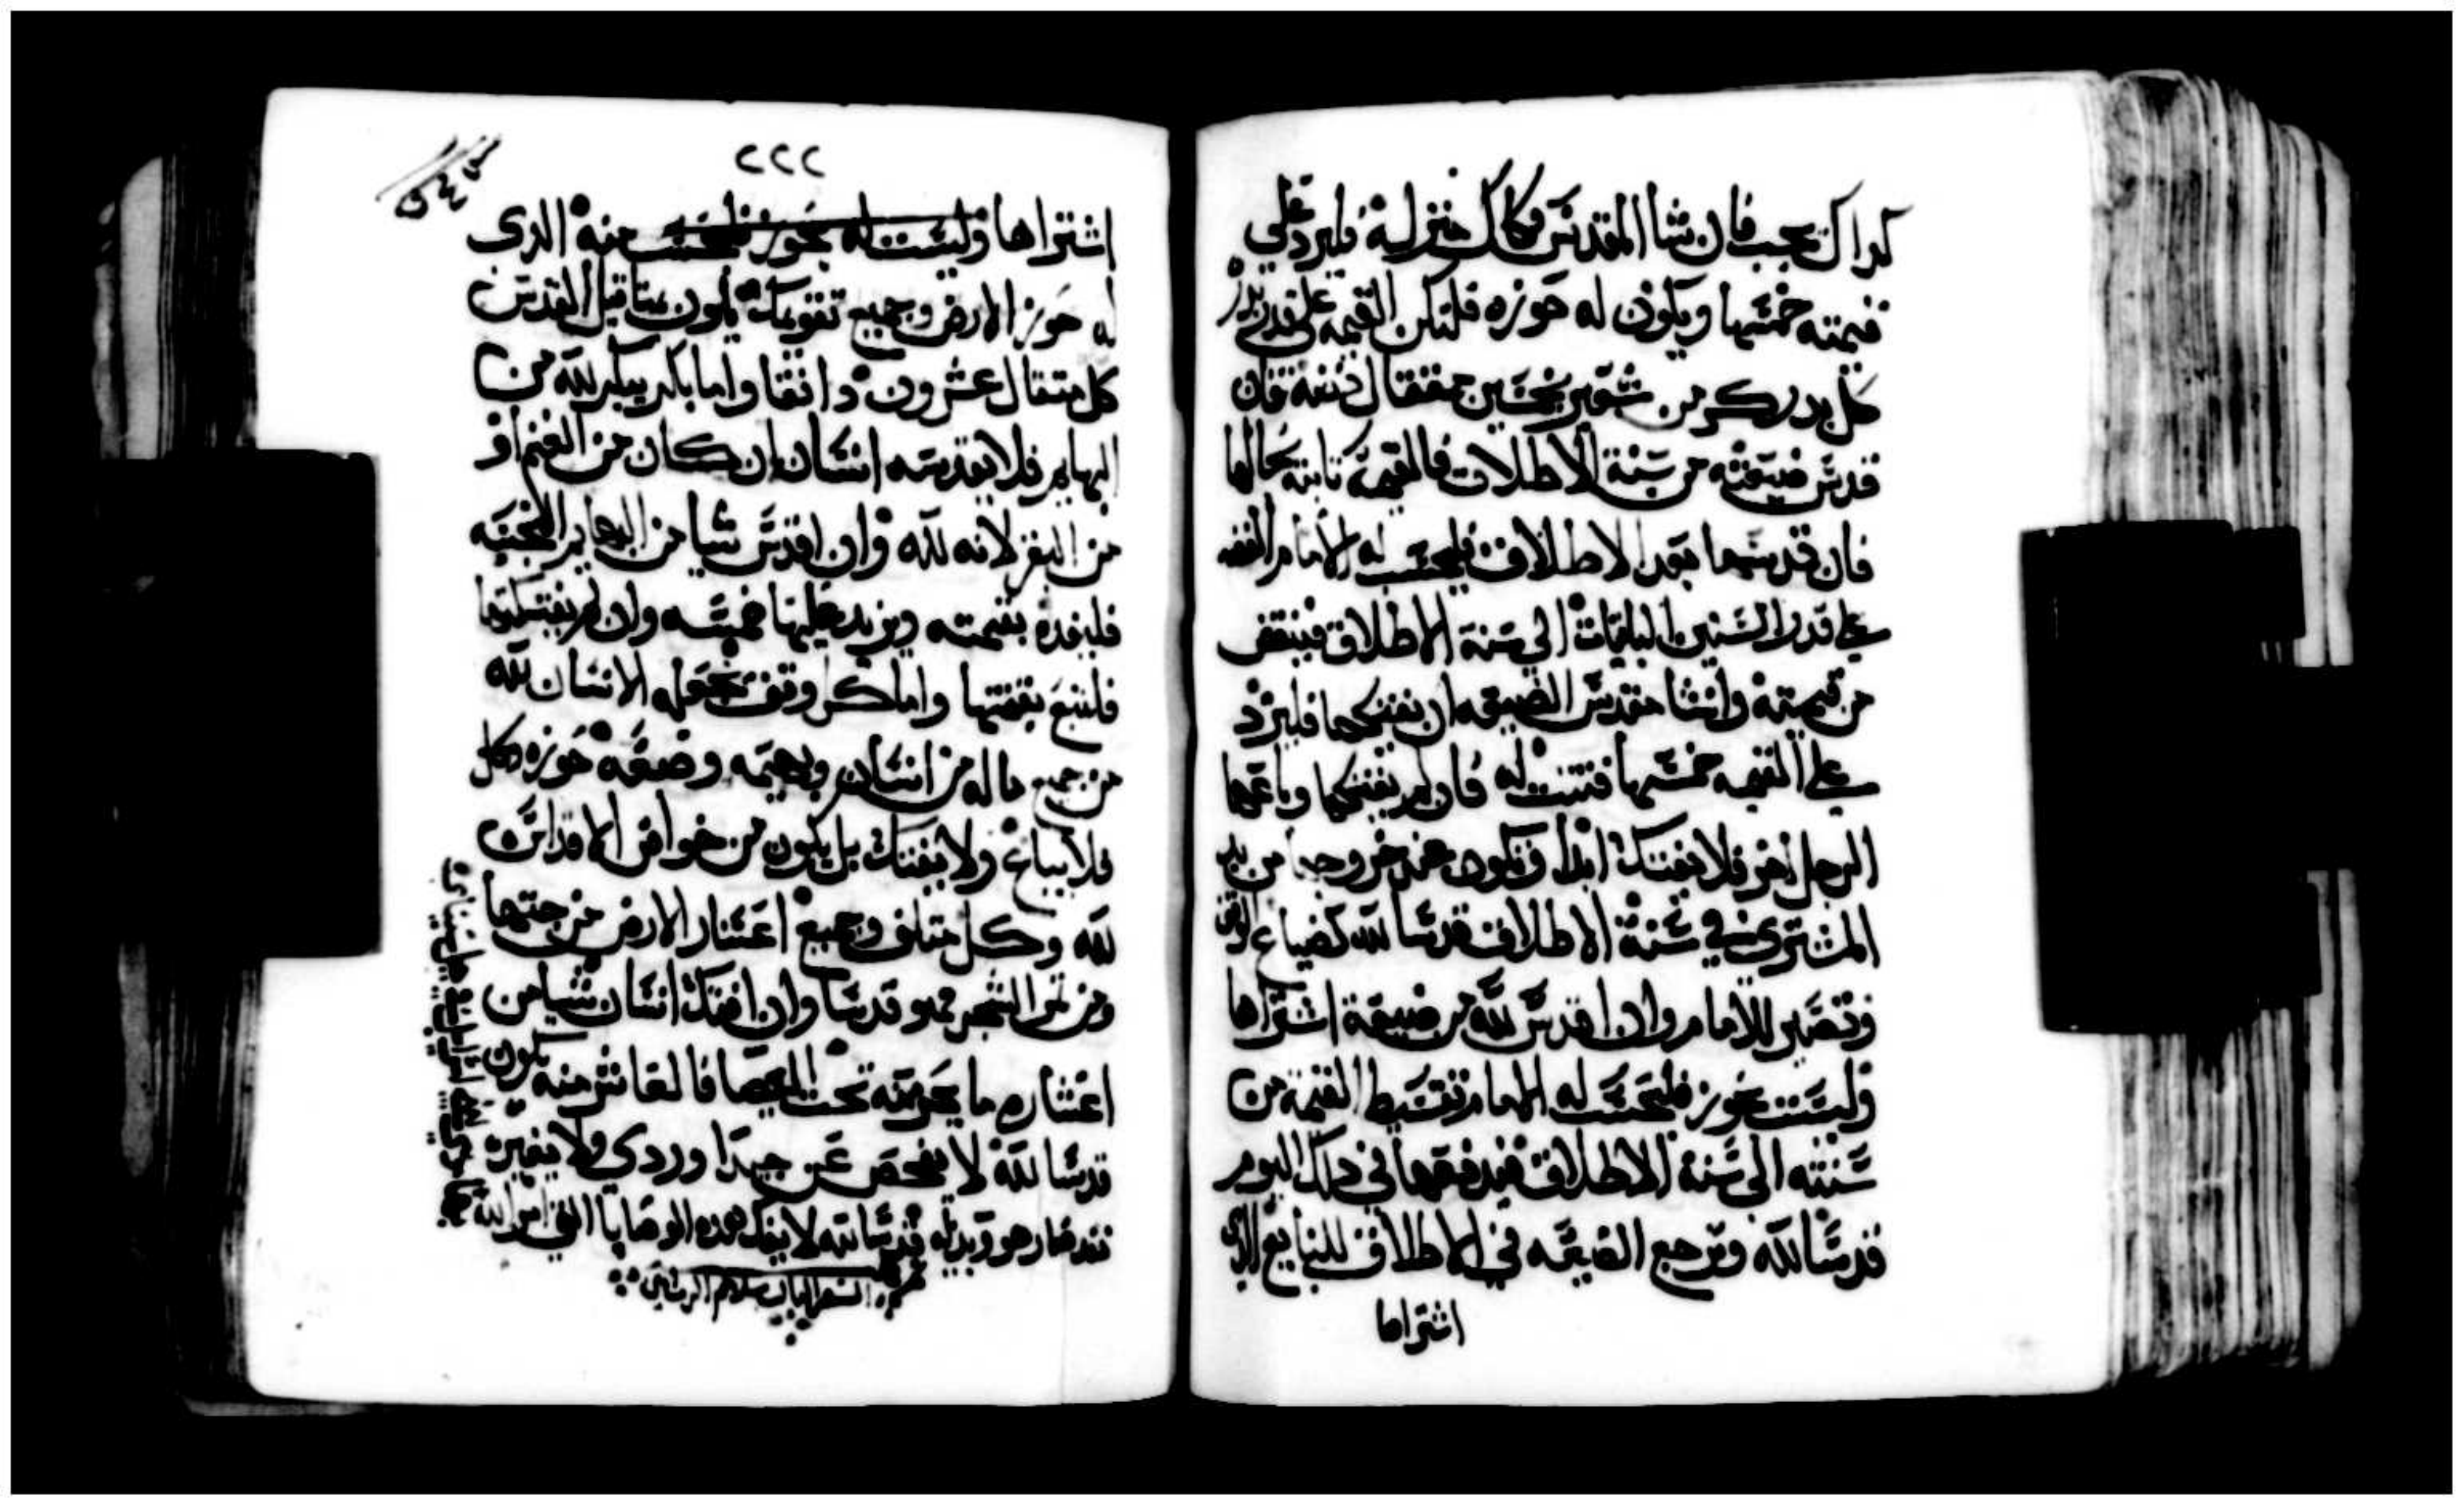 كداك تجب فان شا المقدس فكاك منزله فليرد علي
قيمته خمسها ويكون له حوزه فلتكن القيمه علي قدر بدر
كل بدر كر من شعير بخمسين مثقال فضة فان
قدس ضيعته من سنة الاطلاق فالقيمه ثابته بحالها
فان قدسها بعد الاطلاق فليحسب له الامام الفضه
علي قدر السنين الباقيات الي سنة الاطلاق فينقص
من قيمته وان شا مقدس الضيعه ان يفتكها فليزد
علي القيمه خمسها فتثبت له فان لم يفتكها وباعها
الرجل اخر فلا يفتك ابدا وتكون عند خروجها من يد
المشتري في سنة الاطلاق قدسا لله كضياع الوقف
وتصير للامام وان اقدس لله من ضيعة اشتراها
وليست بحوز فليحسب له الامام تقسيط القيمة من
سنته الي سنة الاطلاق فيدفعها في دلك اليوم
قدسا لله وترجع الضيعه في الاطلاق للبايع الدي
اشتراها
٢٢٢
اشتراها وليست له بحوز فليحسب منه الدي
له حوز الارض وجميع تقويمك يكون بمثاقيل القدس
كل مثقال عشرون دانقا واما بكر يبكر لله من
البهايم فلا يقدسه انسان ان كان من الغنم او
من البقر لانه لله وان اقدس شيا من البهايم النجسه
فليفده بقيمته ويزيد عليها خمسه وان لم يفتكها
فلتبع بقيمتها واما كل وقف يجعله الانسان لله
من جميع ماله من انسان وبهيمه وضيعة حوزه فكل
فلا يباع ولا يفتك بل يكون من خواص الاقداس
لله وكل متلف وجميع اعشار الارض من حبها
ومن ثمر الشجر فهو قدسا وان افتك انسان شيا من
اعشاره ما يجوزه تحت العصا فالعاشر منه يكون
قدسا لله لا يفحص عن جيدا وردي ولا يغيره
قدسا لله لا يفك هده الوصايا التي امر الله